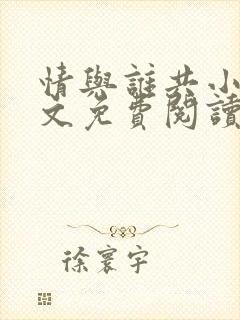 情與誰共小
文免費閱讀
徐寰宇